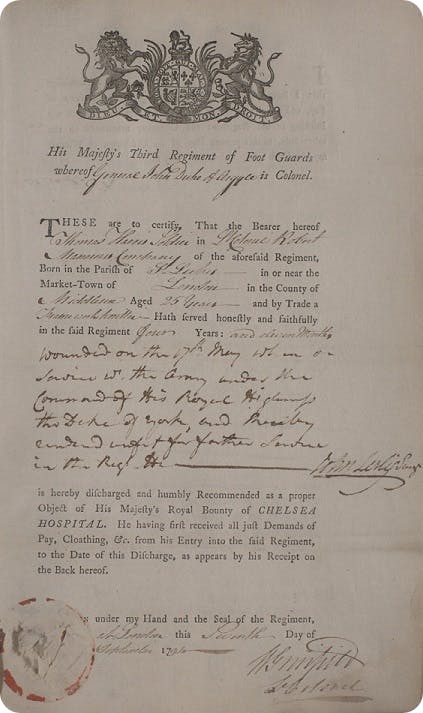 DIEU ET MON DROIT
His Majeſty's Third Regiment of Foot Guards
whereof General John Duke of Argyle is Colonel.
THESE are to certify, That the Bearer hereof
Thomas Soldier in Lt Colonel Robert
Company of the aforeſaid Regiment,
Born in the Pariſh of St Lukes in or near the
Market-Town of London in the County of
Middlesex Aged 25 Years and by Trade a
Hath ſerved honeſtly and faithfully
in the ſaid Regiment Years: and eleven Months
wounded on the 17th May when on
Service wt. the Army under the
Command of His Royal Highness
the Duke of York, and thereby
rendered unfit for further Service
in the Regt. He
is hereby diſcharged and humbly Recommended as a proper
Object of His Majeſty's Royal Bounty of CHELSEA
HOSPITAL. He having firſt received all juſt Demands of
Pay, Cloathing, &c. from his Entry into the ſaid Regiment,
to the Date of this Diſcharge, as appears by his Receipt on
the Back hereof.
under my Hand and the Seal of the Regiment,
at London this Seventh Day of
September 1794
Lt Colonel